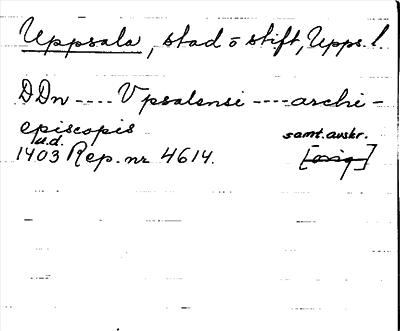 Uppsala, stad o stift, Upps. l.
DDn ---- Vpsalensi ---- archi-
episcopis
u.d. samt. avskr.
1403 Rep. nr 4614. [orig]